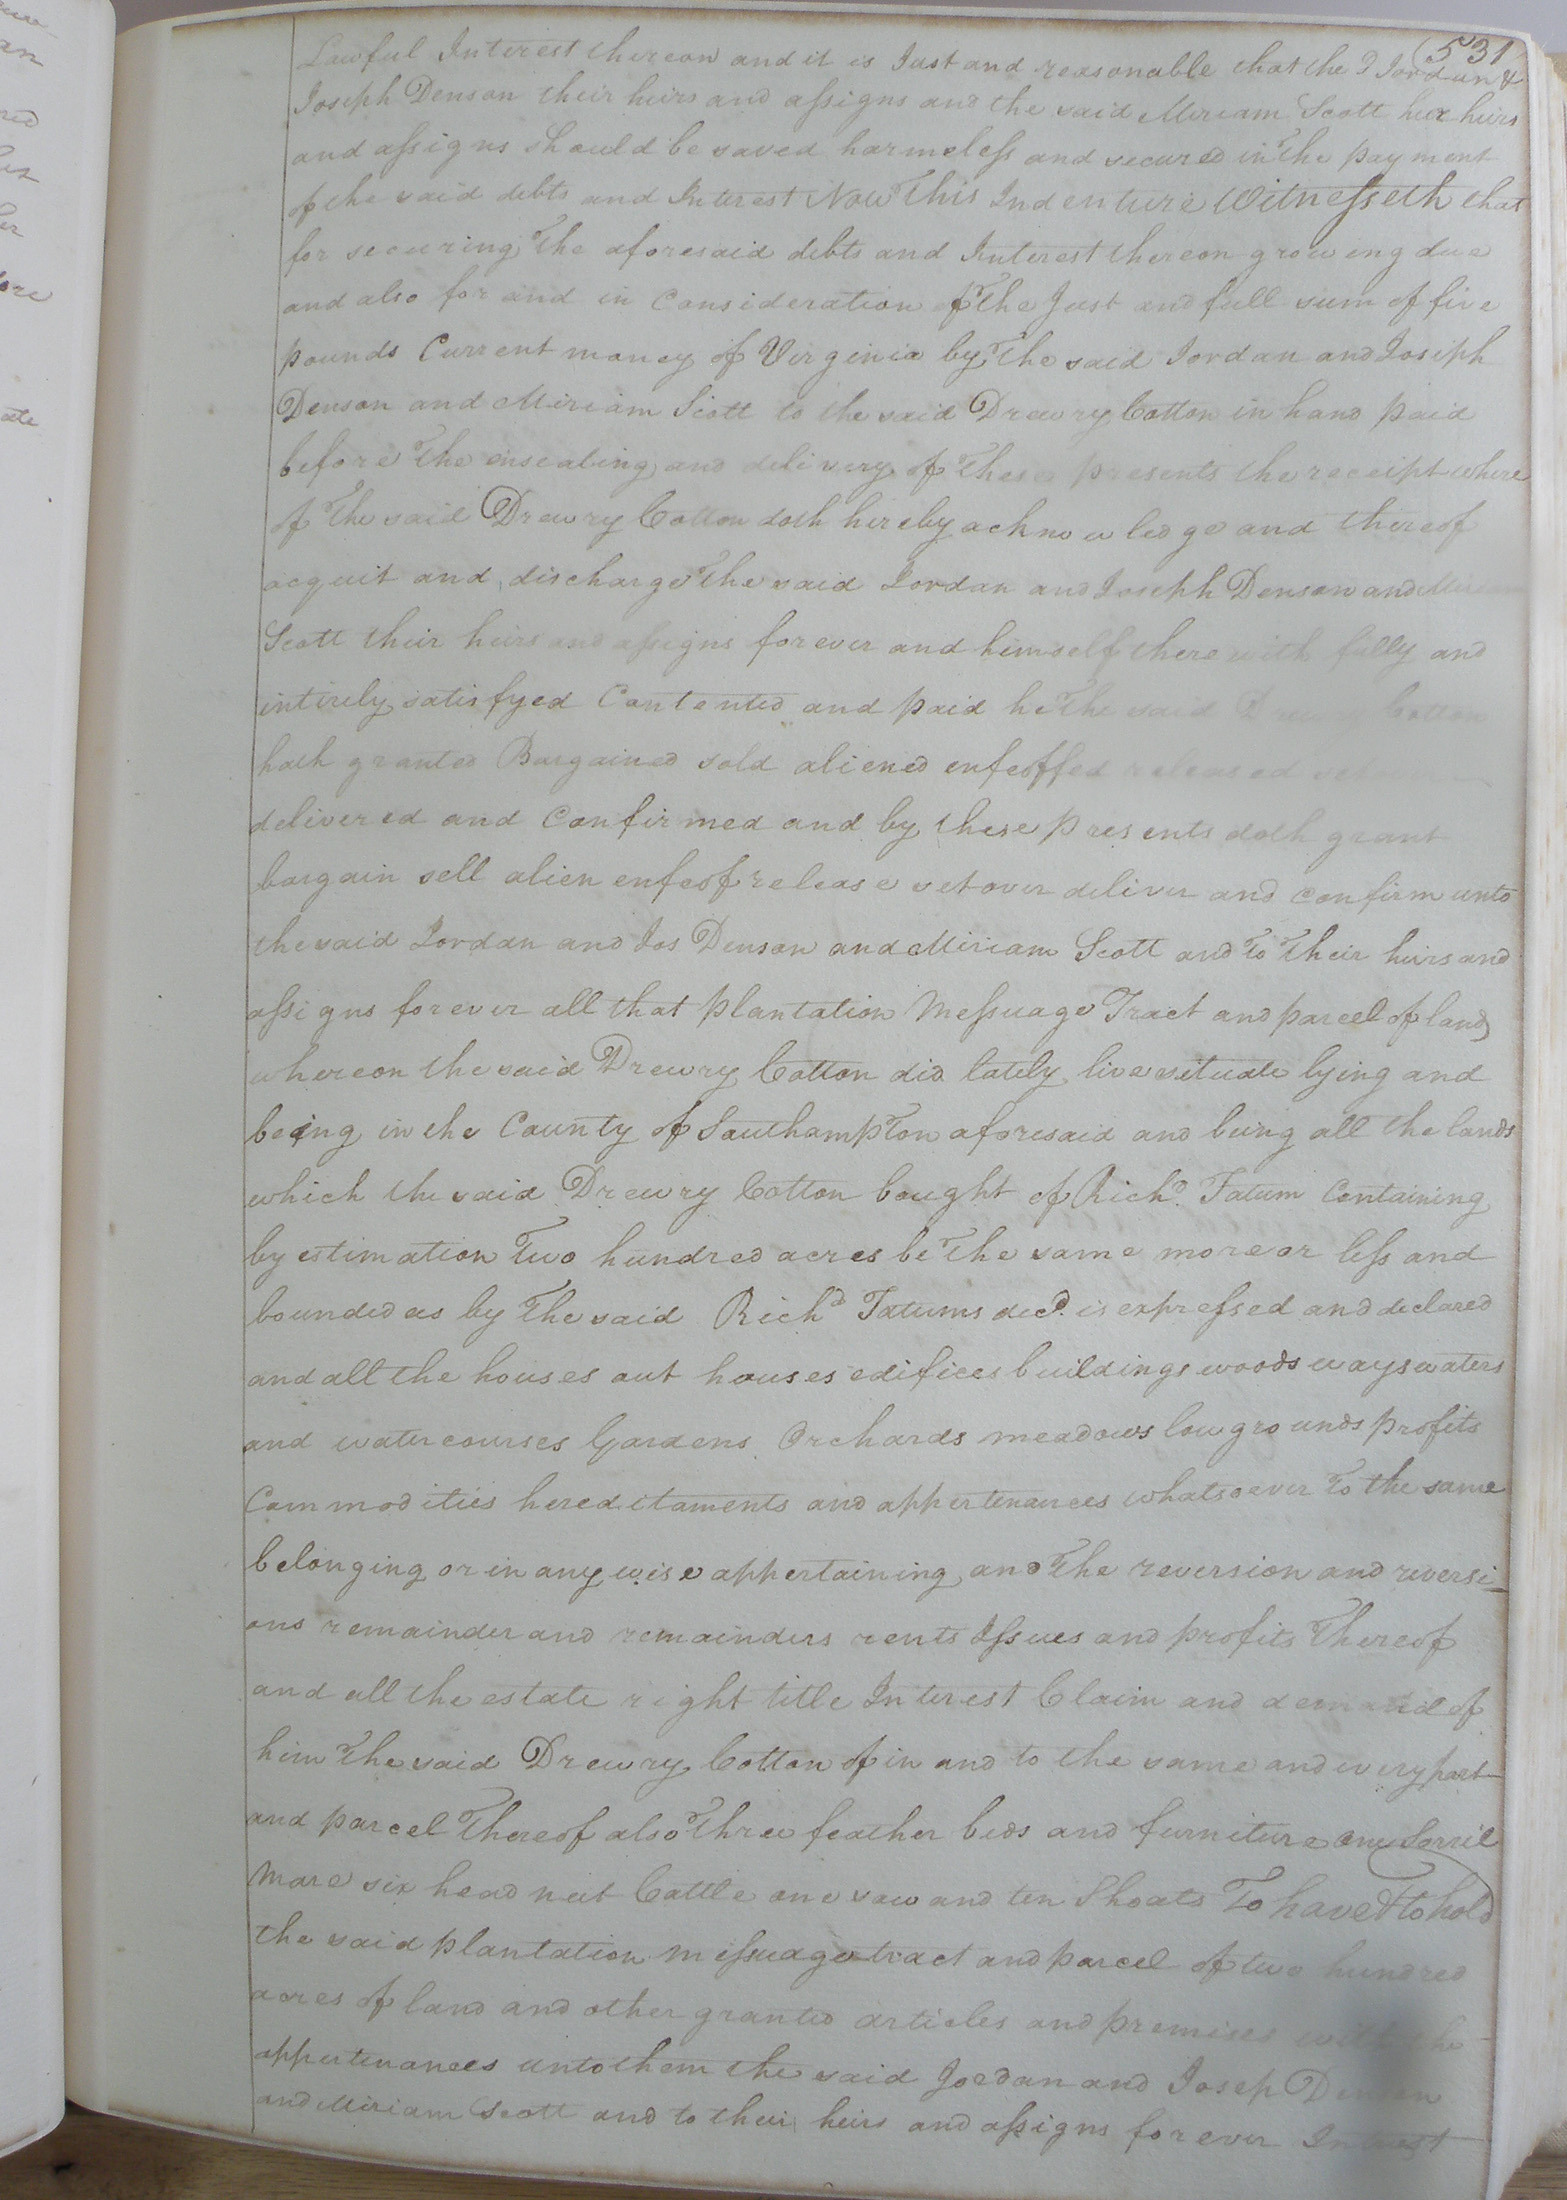 (531
Lawful Interest thereon and it is Just and reasonable that the sd Jordan &
Joseph Denson their heirs and assigns and the said Miriam Scott her heirs
and assigns should be saved harmeless and secured in the payment
of the said debts and Interest Now This Indenture Witnesseth that
for secureing The aforesaid debts and Interest thereon growing due
and also for and in Consideration of The Just and full sum of five
pounds Current money of Virginia by The said Jordan and Joseph
Denson and Miriam Scott to the said Drewry Cotton in hand paid
before The ensealing and delivery of These presents the receipt where
of The said Drewry Cotton doth hereby acknowledge and thereof
acquit and discharge The said Jordan and Joseph Denson and Miriam
Scott their heirs and assigns forever and himself therewith fully and
intirely satisfyed Contented and paid he The said Drewry Cotton
hath granted Bargained sold aliened enfeoffed released set
delivered and Confirmed and by these presents doth grant
bargain sell alien enfeof release set over deliver and confirm unto
the said Jordan and Jos Denson and Miriam Scott and To Their heirs and
assigns forever all that plantation Messuage Tract and parcel of land
whereon the said Drewry Cotton did lately live situate lying and
being in the County of Southampton aforesaid and being all the lands
which the said Drewry Cotton bought of Richd. Tatum Containing
by estimation Two hundred acres be The same more or less and
bounded as by The said Richd Tatums deed is expressed and declared
and all the houses out houses edifices buildings woods ways waters
and watercourses Gardens Orchards meadows low grounds profits
Commodities hereditaments and appertenances whatsoever To the same
belonging or in any wise appertaining and The reversion and reversi-
ons remainder and remainders rents Issues and profits Thereof
and all the estate right title Interest Claim and demand of
him The said Drewry Cotton of in and to the same and every part
and parcel Thereof also Three feather beds and furniture one Sorril
Mare six head neet Cattle one sow and ten Shoats To have & to hold
the said plantation messuage tract and parcel of two hundred
acres of land and other granted articles and premises with the
appertenances unto them the said Jordan and Josep Denson
and Miriam Scott and to their heirs and assigns forever In trust